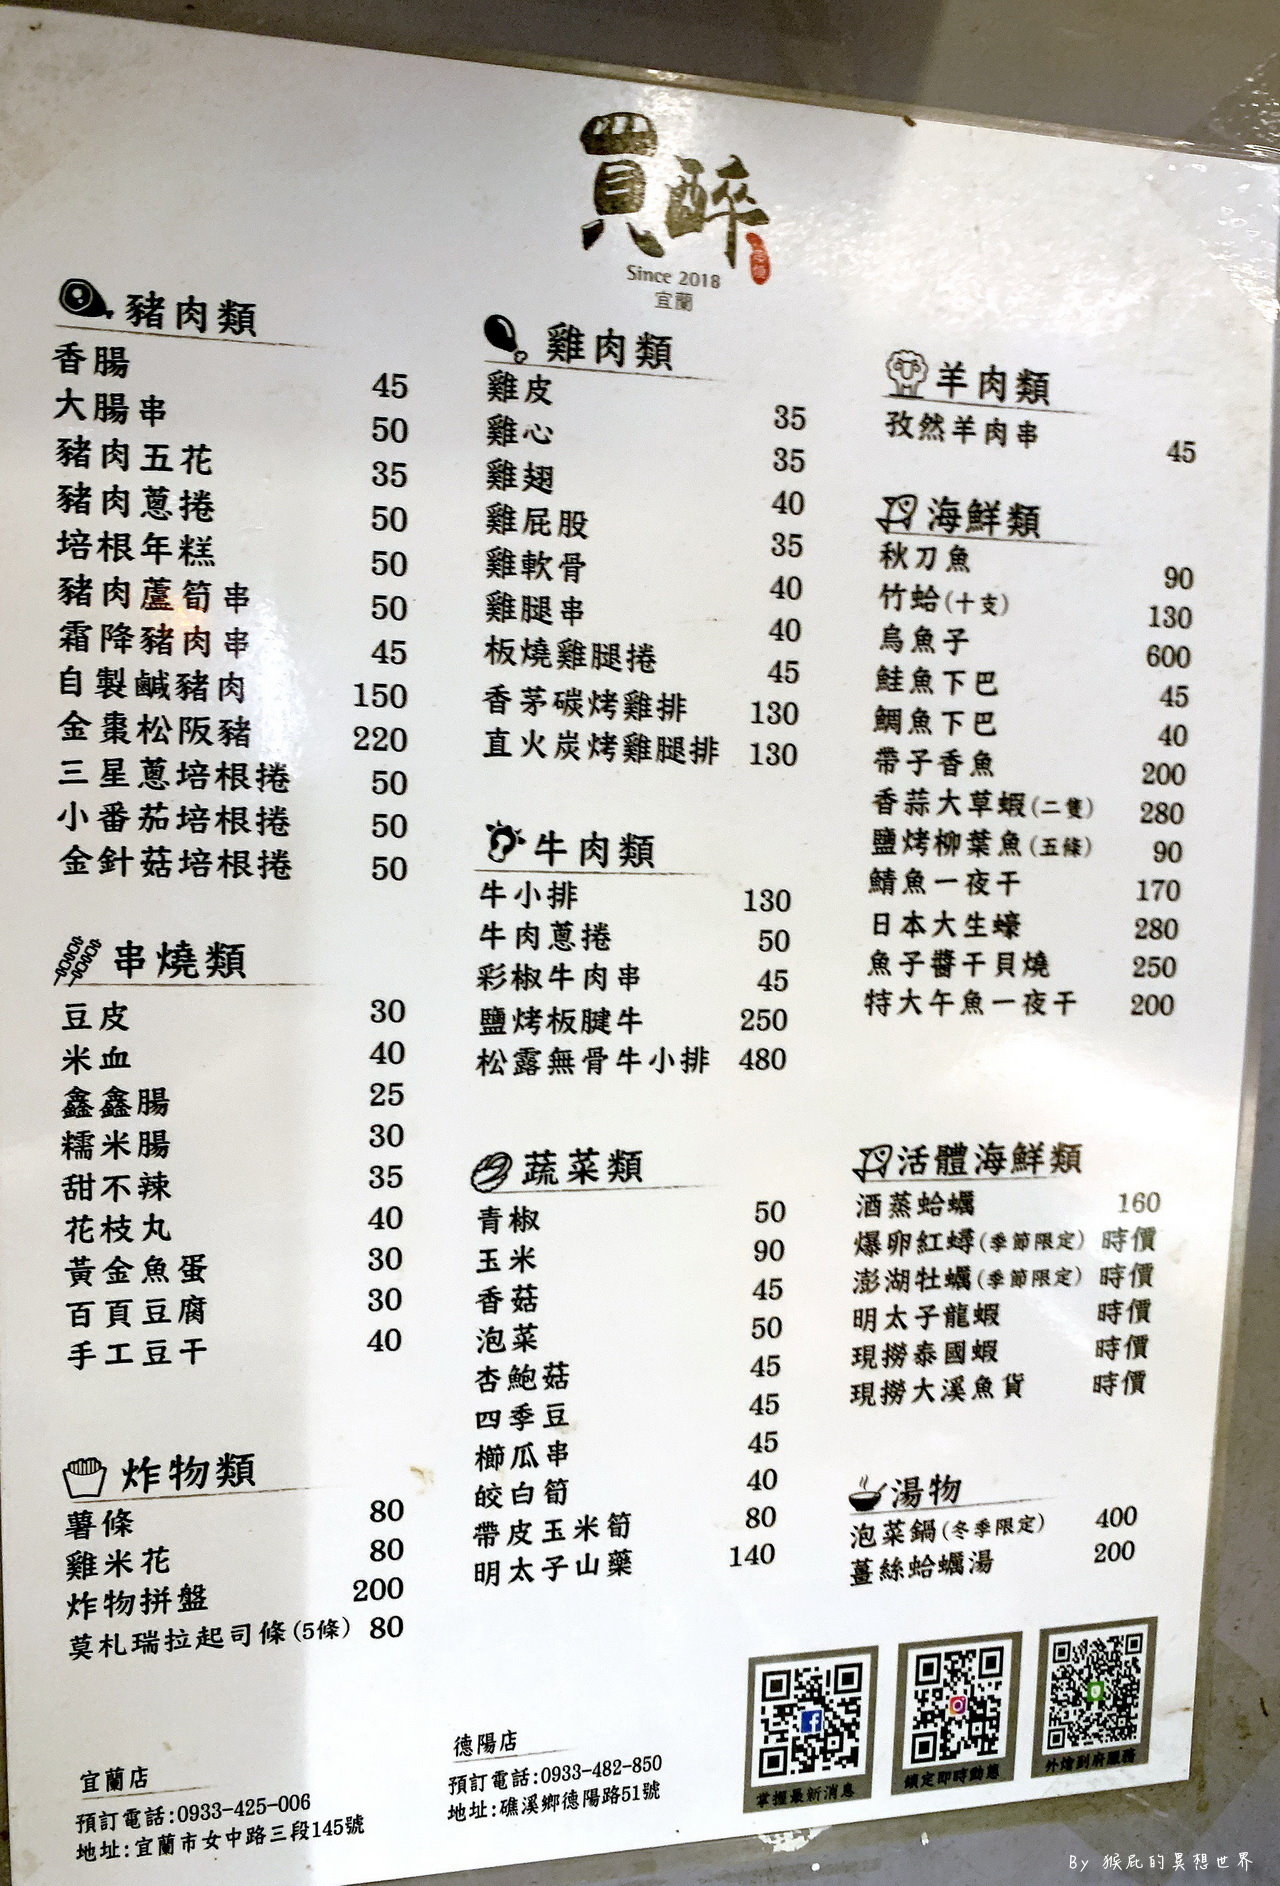 買醉
Since 2018
宜蘭
豬肉類
香腸 45
大腸串 50
豬肉五花 35
豬肉蔥捲 50
培根年糕 50
豬肉蘆筍串 50
霜降豬肉串 45
自製鹹豬肉 150
金棗松阪豬 220
三星蔥培根捲 50
小番茄培根捲 50
金針菇培根捲 50
串燒類
豆皮 30
米血 40
鑫鑫腸 25
糯米腸 30
甜不辣 35
花枝丸 40
黃金魚蛋 30
百頁豆腐 30
手工豆干 40
炸物類
薯條 80
雞米花 80
炸物拼盤 200
莫札瑞拉起司條(5條) 80
雞肉類
雞皮 35
雞心 35
雞翅 40
雞屁股 35
雞軟骨 40
雞腿串 40
板燒雞腿捲 45
香茅碳烤雞排 130
直火炭烤雞腿排 130
牛肉類
牛小排 130
牛肉蔥捲 50
彩椒牛肉串 45
鹽烤板腱牛 250
松露無骨牛小排 480
蔬菜類
青椒 50
玉米 90
香菇 45
泡菜 50
杏鮑菇 45
四季豆 45
櫛瓜串 45
皎白筍 40
帶皮玉米筍 80
明太子山藥 140
羊肉類
孜然羊肉串 45
海鮮類
秋刀魚 90
竹蛤(十支) 130
烏魚子 600
鮭魚下巴 45
鯛魚下巴 40
帶子香魚 200
香蒜大草蝦(二隻) 280
鹽烤柳葉魚(五條) 90
鯖魚一夜干 170
日本大生蠔 280
魚子醬干貝燒 250
特大午魚一夜干 200
活體海鮮類
酒蒸蛤蠣 160
爆卵紅蟳(季節限定) 時價
澎湖牡蠣(季節限定) 時價
明太子龍蝦 時價
現撈泰國蝦 時價
現撈大溪魚貨 時價
湯物
泡菜鍋(冬季限定) 400
薑絲蛤蠣湯 200
宜蘭店
預訂電話:0933-425-006
地址:宜蘭市女中路三段145號
德陽店
預訂電話:0933-482-850
地址:礁溪鄉德陽路51號
掌握最新消息
鎖定即時動態
外燴到府服務
By 猴屁的異想世界